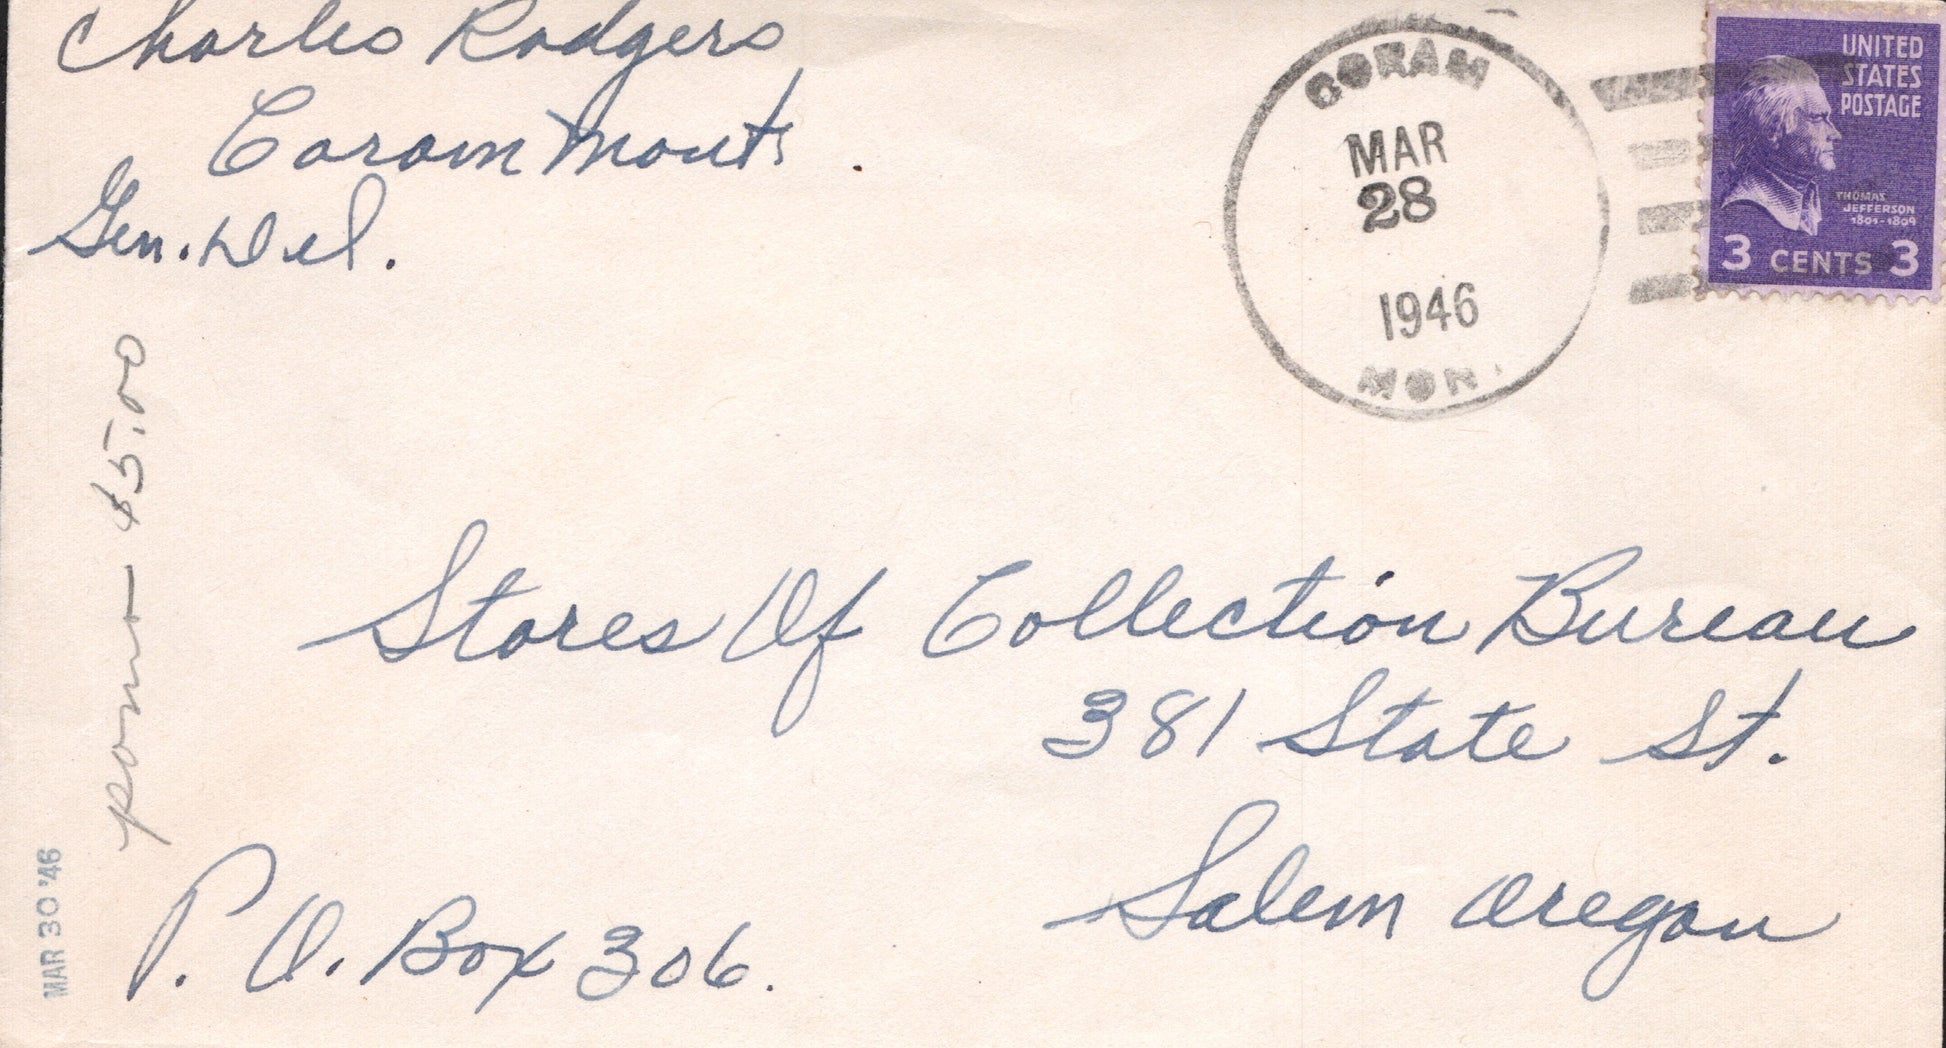 Charles Rodgers
Coram Mont.
Gen. Del.
CORAM
MAR
28
1946
MON.
UNITED
STATES
POSTAGE
THOMAS
JEFFERSON
1801-1809
3 CENTS 3
pomo — $5.00
Stores Of Collection Bureau
381 State St.
Salem Oregon
P. O. Box 306.
MAR 30 '46